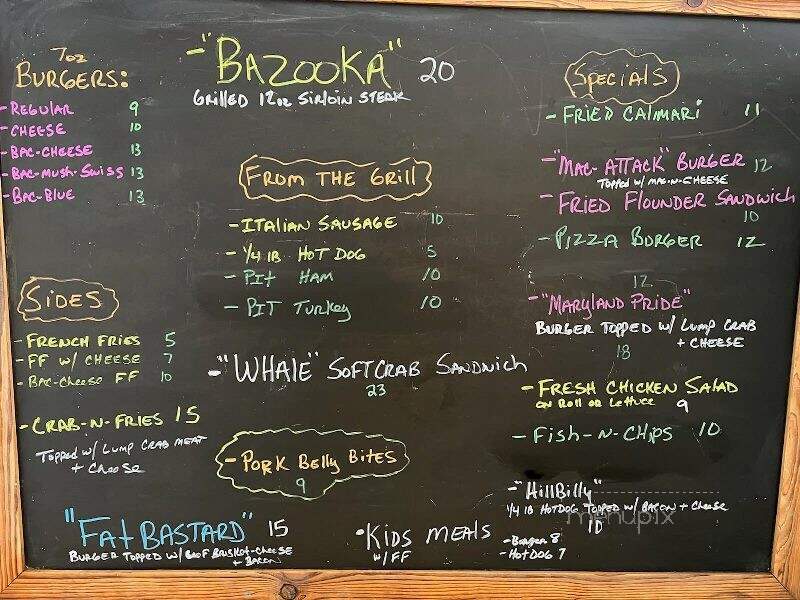 7oz
BURGERS:
- REGULAR 9
- CHEESE 10
- BAC-CHEESE 13
- BAC-MUSH-SWISS 13
- BAC-BLUE 13
SIDES
- FRENCH FRIES 5
- FF W/ CHEESE 7
- BAC-CHEESE FF 10
- CRAB-N-FRIES 15
TOPPED W/ LUMP CRAB MEAT
+ CHEESE
"FAT BASTARD" 15
BURGER TOPPED W/ BEEF BRISKET-CHEESE
+ BACON
- "BAZOOKA" 20
GRILLED 12oz SIRLOIN STEAK
FROM THE GRILL
- ITALIAN SAUSAGE 10
- 1/4 lB HOT DOG 5
- PIT HAM 10
- PIT TURKEY 10
- "WHALE" SOFTCRAB SANDWICH
23
- PORK BELLY BITES
9
• KIDS MEALS
W/ FF
- Burger 8
- HOTDOG 7
SPECIALS
- FRIED CALIMARI 11
- "MAC-ATTACK" BURGER 12
TOPPED W/ MAC-N-CHEESE
- FRIED FLOUNDER SANDWICH
10
- PIZZA BURGER 12
12
- "MARYLAND PRIDE"
BURGER TOPPED W/ LUMP CRAB
+ CHEESE
18
- FRESH CHICKEN SALAD
ON ROLL OR LETTUCE 9
- FISH-N-CHIPS 10
- "HILLBILLY"
1/4 lB HOTDOG TOPPED W/ BACON + CHEESE
10
menupix